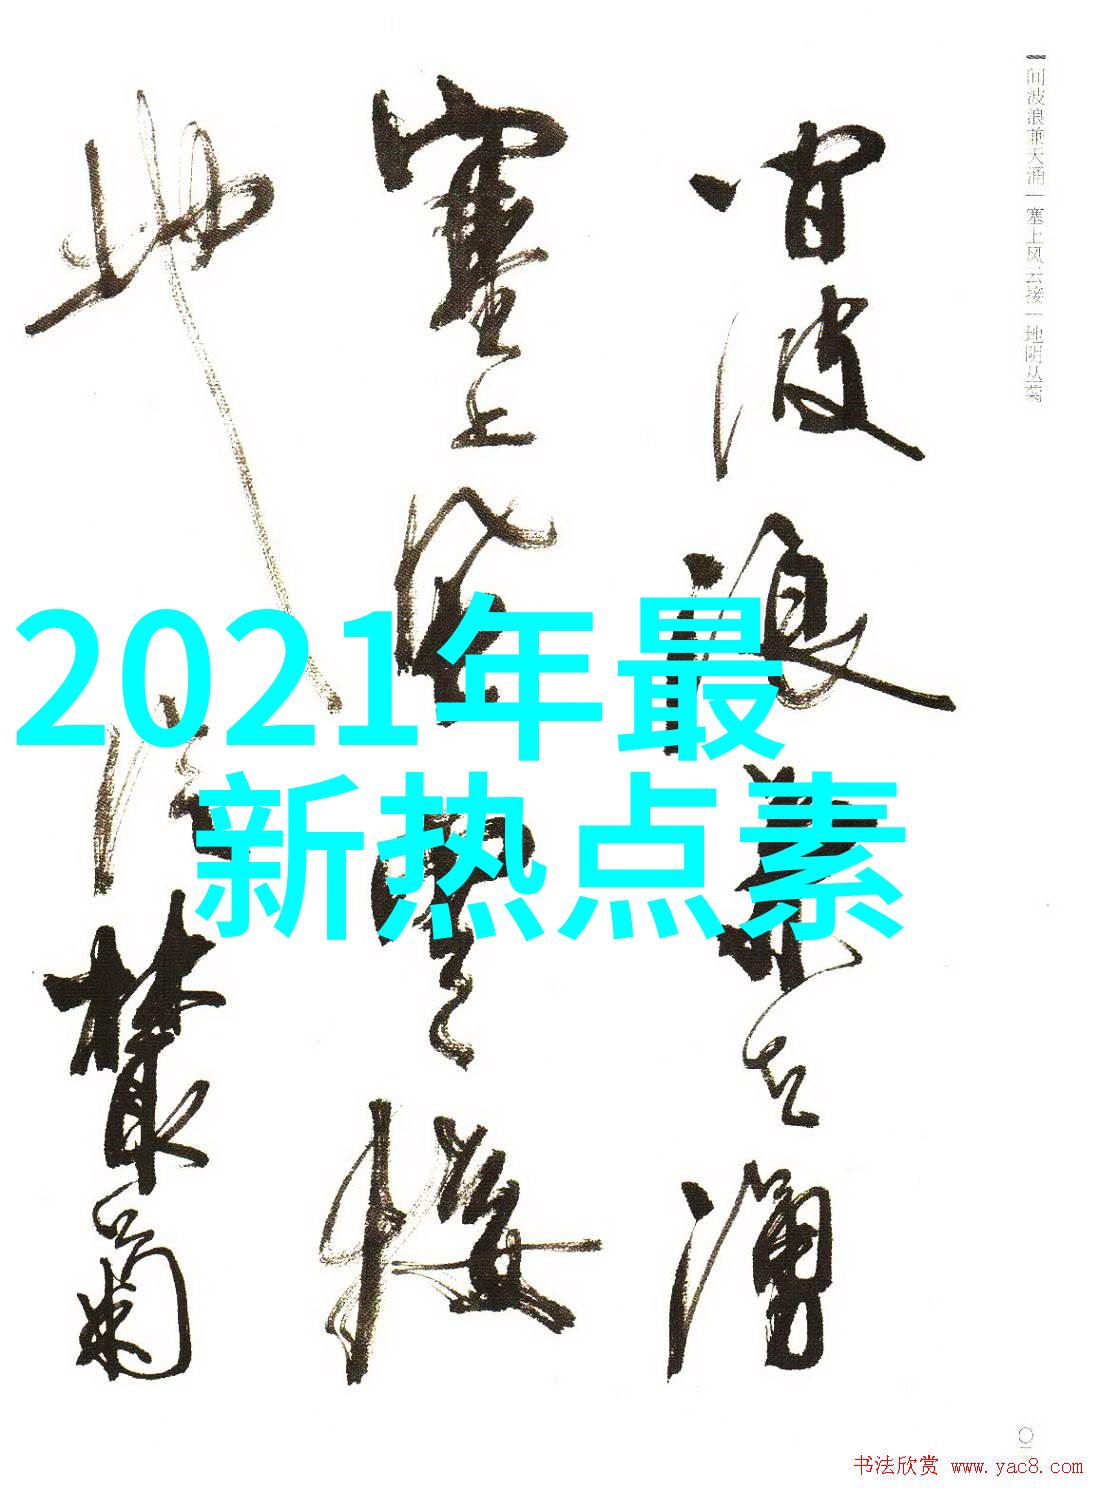 间波浪兼天涌 塞上风云接 地阴丛菊
间波浪兼天涌
塞上风云接
地阴丛菊
2021年最
新热点素
书法欣赏 www.yac8.com